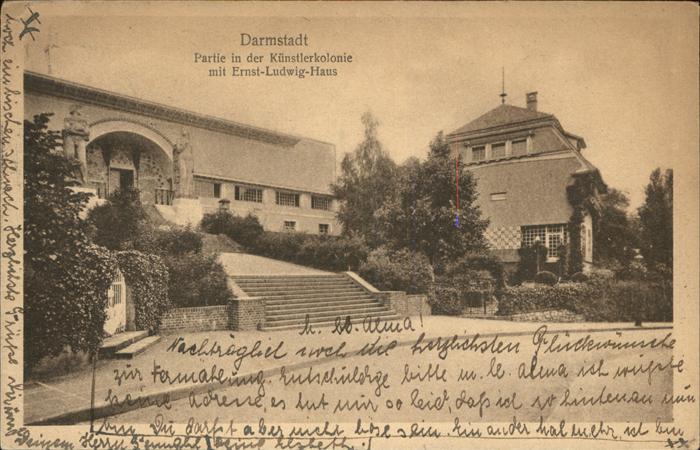 Darmstadt
Partie in der Künstlerkolonie
mit Ernst-Ludwig-Haus
M. lb. Alma!
Nachträglich noch die herzlichsten Glückwünsche
zur Vermählung. Entschuldige bitte m. lb. Alma ich wußte
keine Adresse, es tut mir so leid, daß ich so hintenan nun
bin. Du darfst aber nicht böse sein. Ein ander mal mehr, ich bin
Deinem Herrn Gemahl
noch ein bischen schwach. Herzlichste Grüße